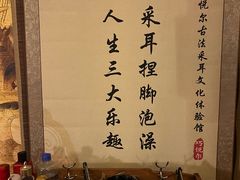 悦尔古法采耳文化体验馆
采耳捏脚泡澡
人生三大乐趣